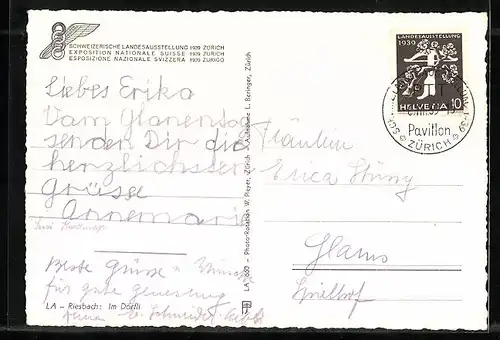 SCHWEIZERISCHE LANDESAUSSTELLUNG 1939 ZÜRICH
EXPOSITION NATIONALE SUISSE 1939 ZURICH
ESPOSIZIONE NAZIONALE SVIZZERA 1939 ZURIGO
Liebes Erika
Vom
senden Dir die
herzlichsten
Grüsse
Annemarie
Beste Grüsse u Wünsche
für gute genesung
LA - Riesbach: Im Dörfli
LA 650 - Photo-Rotation W. Pleyer, Zürich - Aufnahme L. Beringer, Zürich
LANDESAUSSTELLUNG
1939
HELVETIA 10
Pavillon
ZÜRICH
Fräulein
Erica
Glarus
Spielhof